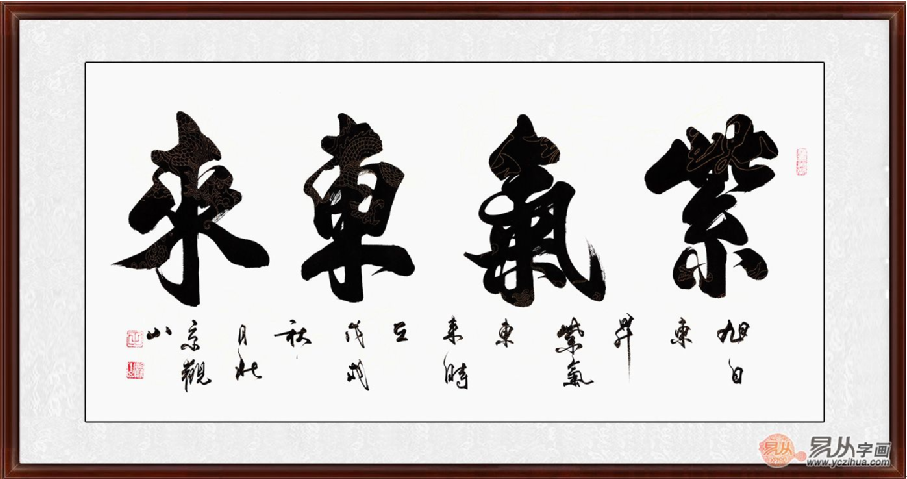 紫氣東來
旭日
東
昇
紫氣
東
來時
戊戌
秋
月於
京觀
山
易从
易从字画
www.yczihua.com